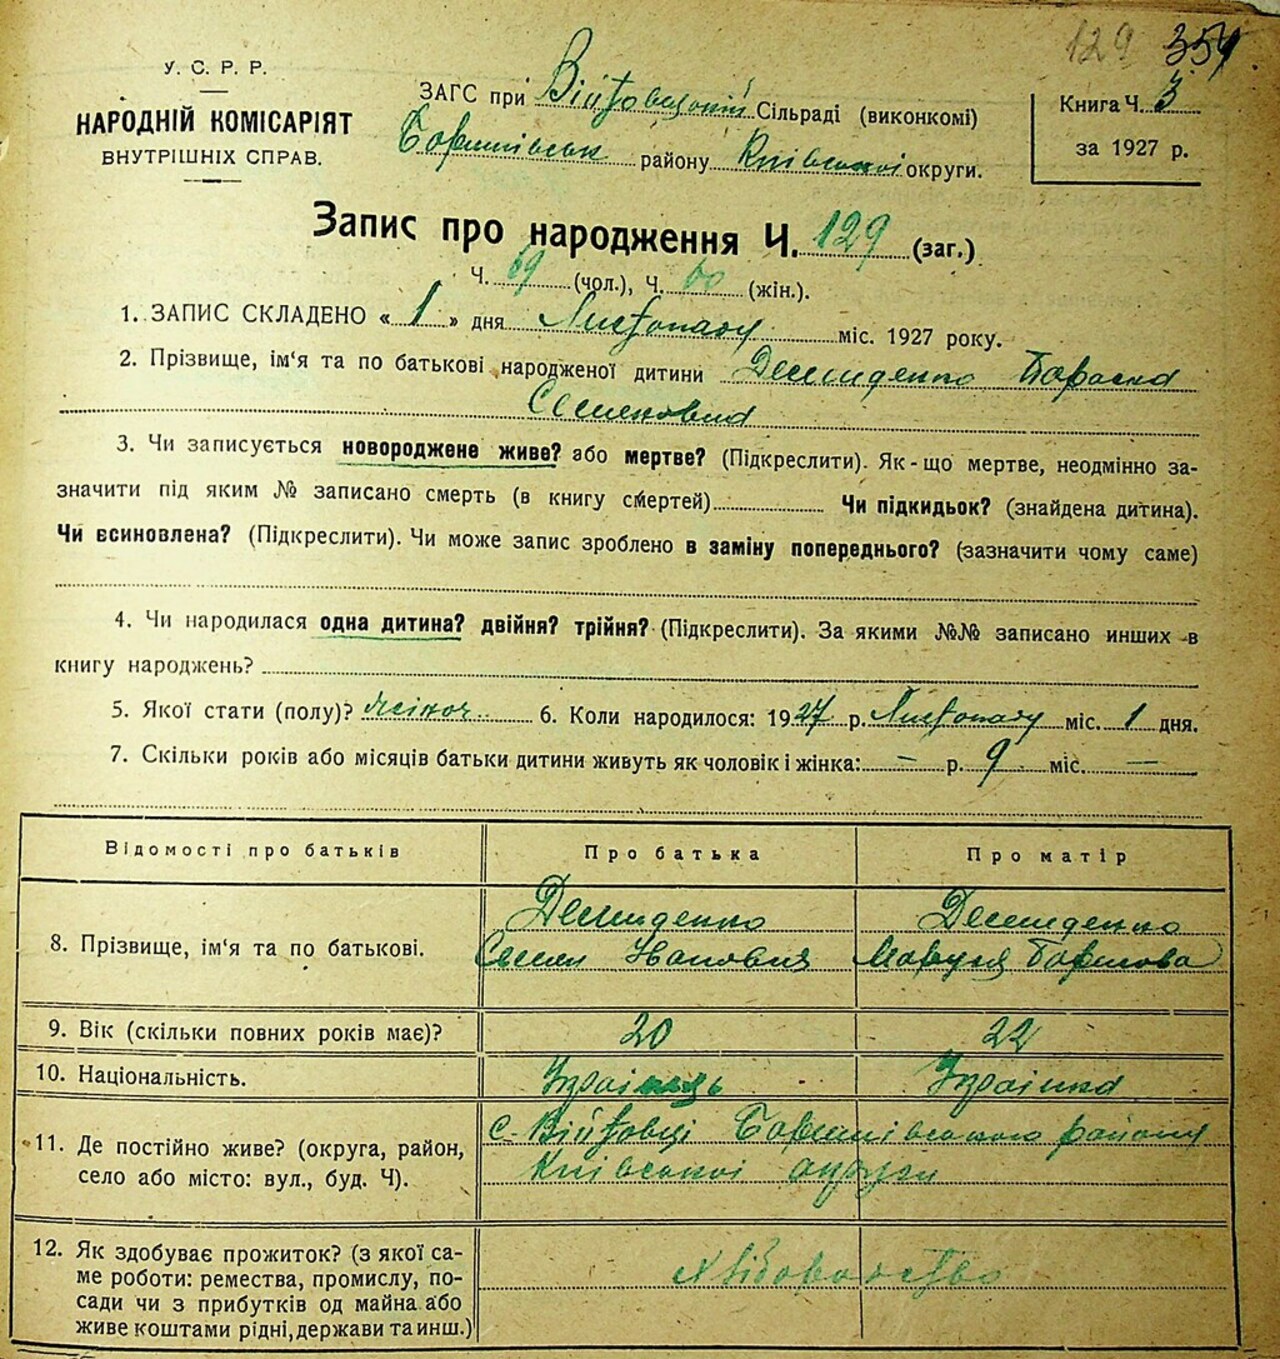 129 354
У. С. Р. Р.
НАРОДНІЙ КОМІСАРІЯТ
ВНУТРІШНІХ СПРАВ.
ЗАГС при Війтовецькій Сільраді (виконкомі)
Баришівськ району Київської округи.
Книга Ч. 3
за 1927 р.
Запис про народження Ч. 129 (заг.)
Ч. 69 (чол.), Ч. 60 (жін.).
1. ЗАПИС СКЛАДЕНО « 1 » дня Листопаду міс. 1927 року.
2. Прізвище, ім'я та по батькові народженої дитини Демиденко Параска
Семеновна
3. Чи записується новороджене живе? або мертве? (Підкреслити). Як-що мертве, неодмінно за-
значити під яким № записано смерть (в книгу смертей) Чи підкидьок? (знайдена дитина).
Чи всиновлена? (Підкреслити). Чи може запис зроблено в заміну попереднього? (зазначити чому саме)
4. Чи народилася одна дитина? двійня? трійня? (Підкреслити). За якими №№ записано инших в
книгу народжень?
5. Якої стати (полу)? жіноч. 6. Коли народилося: 1927 р. Листопаду міс. 1 дня.
7. Скільки років або місяців батьки дитини живуть як чоловік і жінка: — р. 9 міс. —
Відомості про батьків Про батька Про матір
8. Прізвище, ім'я та по батькові. Демиденко Демиденко
Семен Маруся
9. Вік (скільки повних років має)? 20 22
10. Національність. Українець Українка
11. Де постійно живе? (округа, район,
село або місто: вул., буд. Ч).
с. Війтовці Баришівського району
Київської округи
12. Як здобуває прожиток? (з якої са-
ме роботи: ремества, промислу, по-
сади чи з прибутків од майна або
живе коштами рідні, держави та инш.)
хліборобство